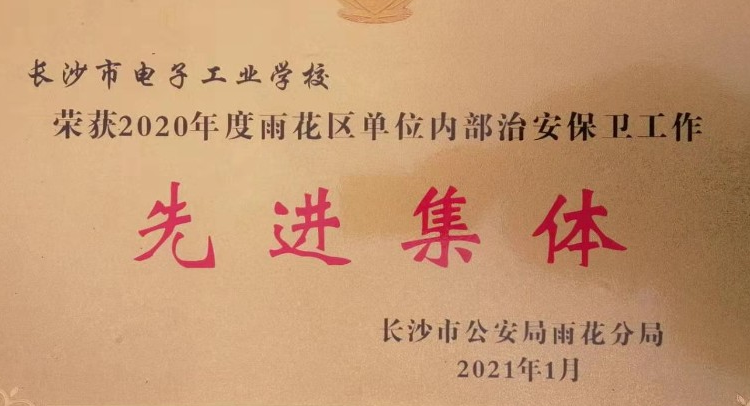 长沙市电子工业学校
荣获2020年度雨花区单位内部治安保卫工作
先进集体
长沙市公安局雨花分局
2021年1月